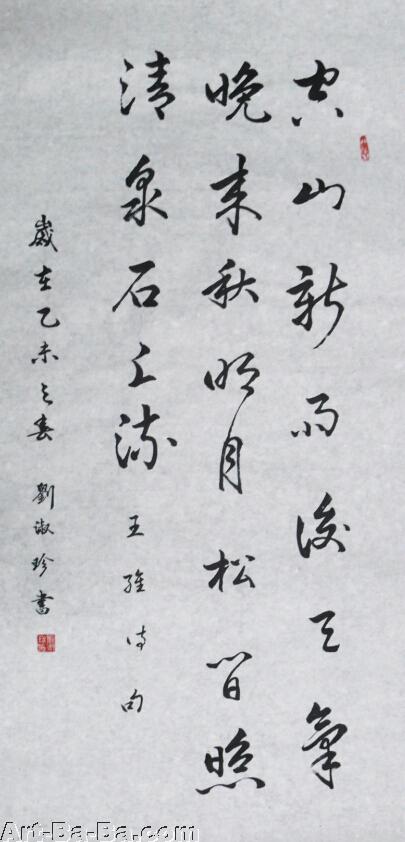 空山新雨後天氣
晚來秋明月松間照
清泉石上流 王維诗句
歲在乙未之春 劉淑珍書
Art-Ba-Ba.com